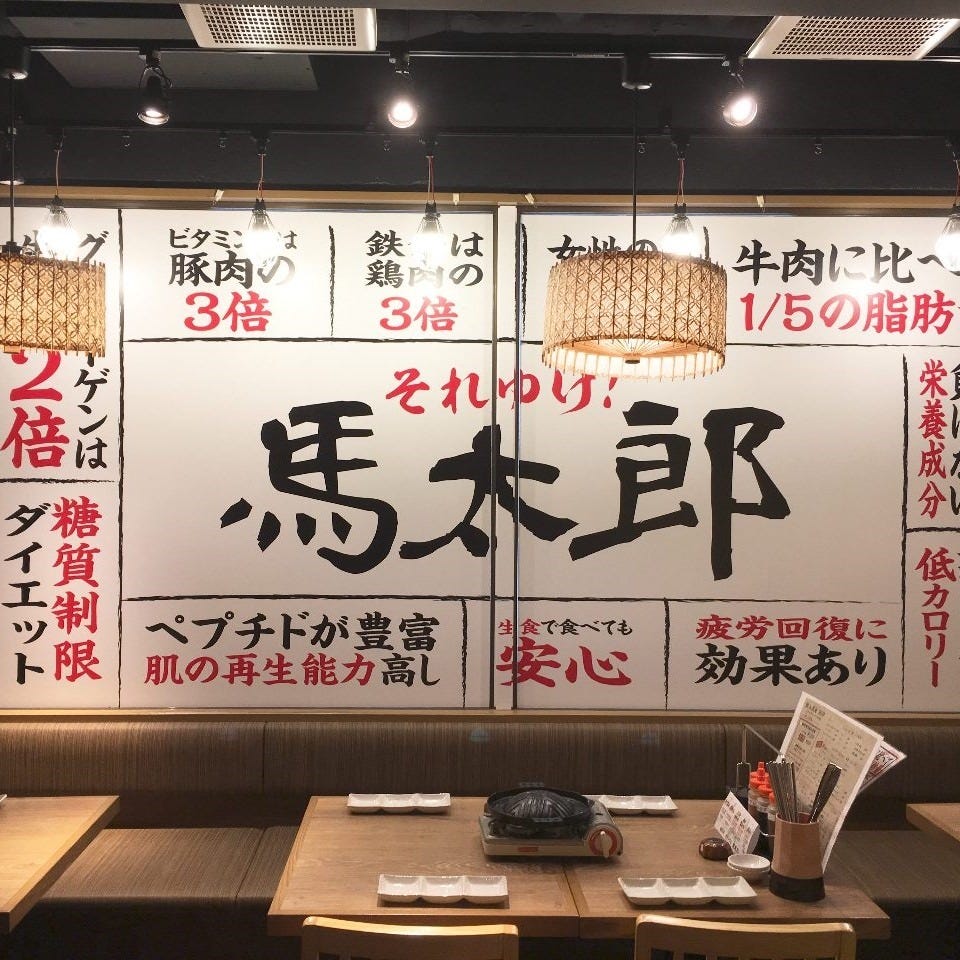 ビタミン
は
豚肉の
3倍
鉄
は
鶏肉の
3倍
女性の
牛肉に比べ
1/5の脂肪
ーゲンは
2倍
糖質制限
ダイエット
それゆけ!
馬太郎
栄養成分
低カロリー
ペプチドが豊富
肌の再生能力高し
生食で食べても
安心
疲労回復に
効果あり